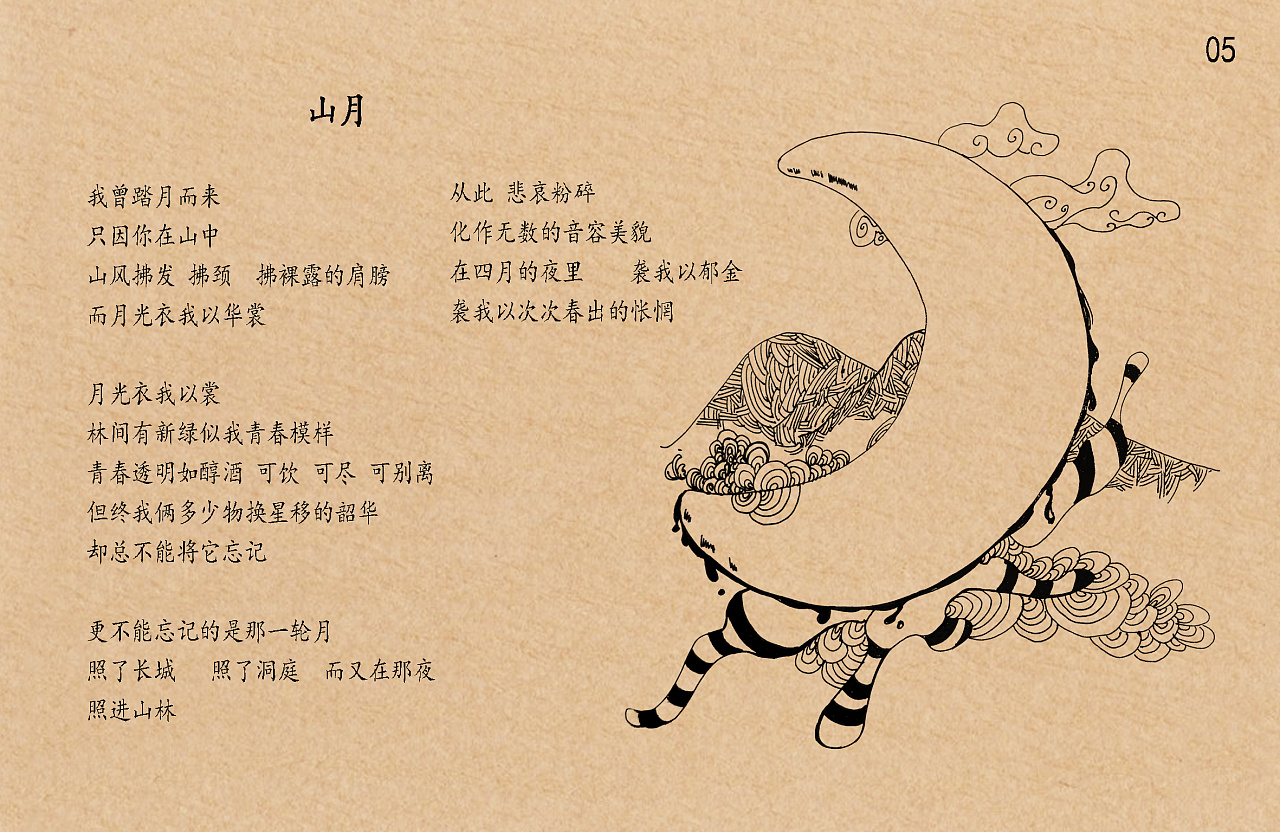 05
山月
我曾踏月而来
只因你在山中
山风拂发 拂颈 拂裸露的肩膀
而月光衣我以华裳
月光衣我以裳
林间有新绿似我青春模样
青春透明如醇酒 可饮 可尽 可别离
但终我俩多少物换星移的韶华
却总不能将它忘记
更不能忘记的是那一轮月
照了长城 照了洞庭 而又在那夜
照进山林
从此 悲哀粉碎
化作无数的音容美貌
在四月的夜里 袭我以郁金
袭我以次次春出的怅惘